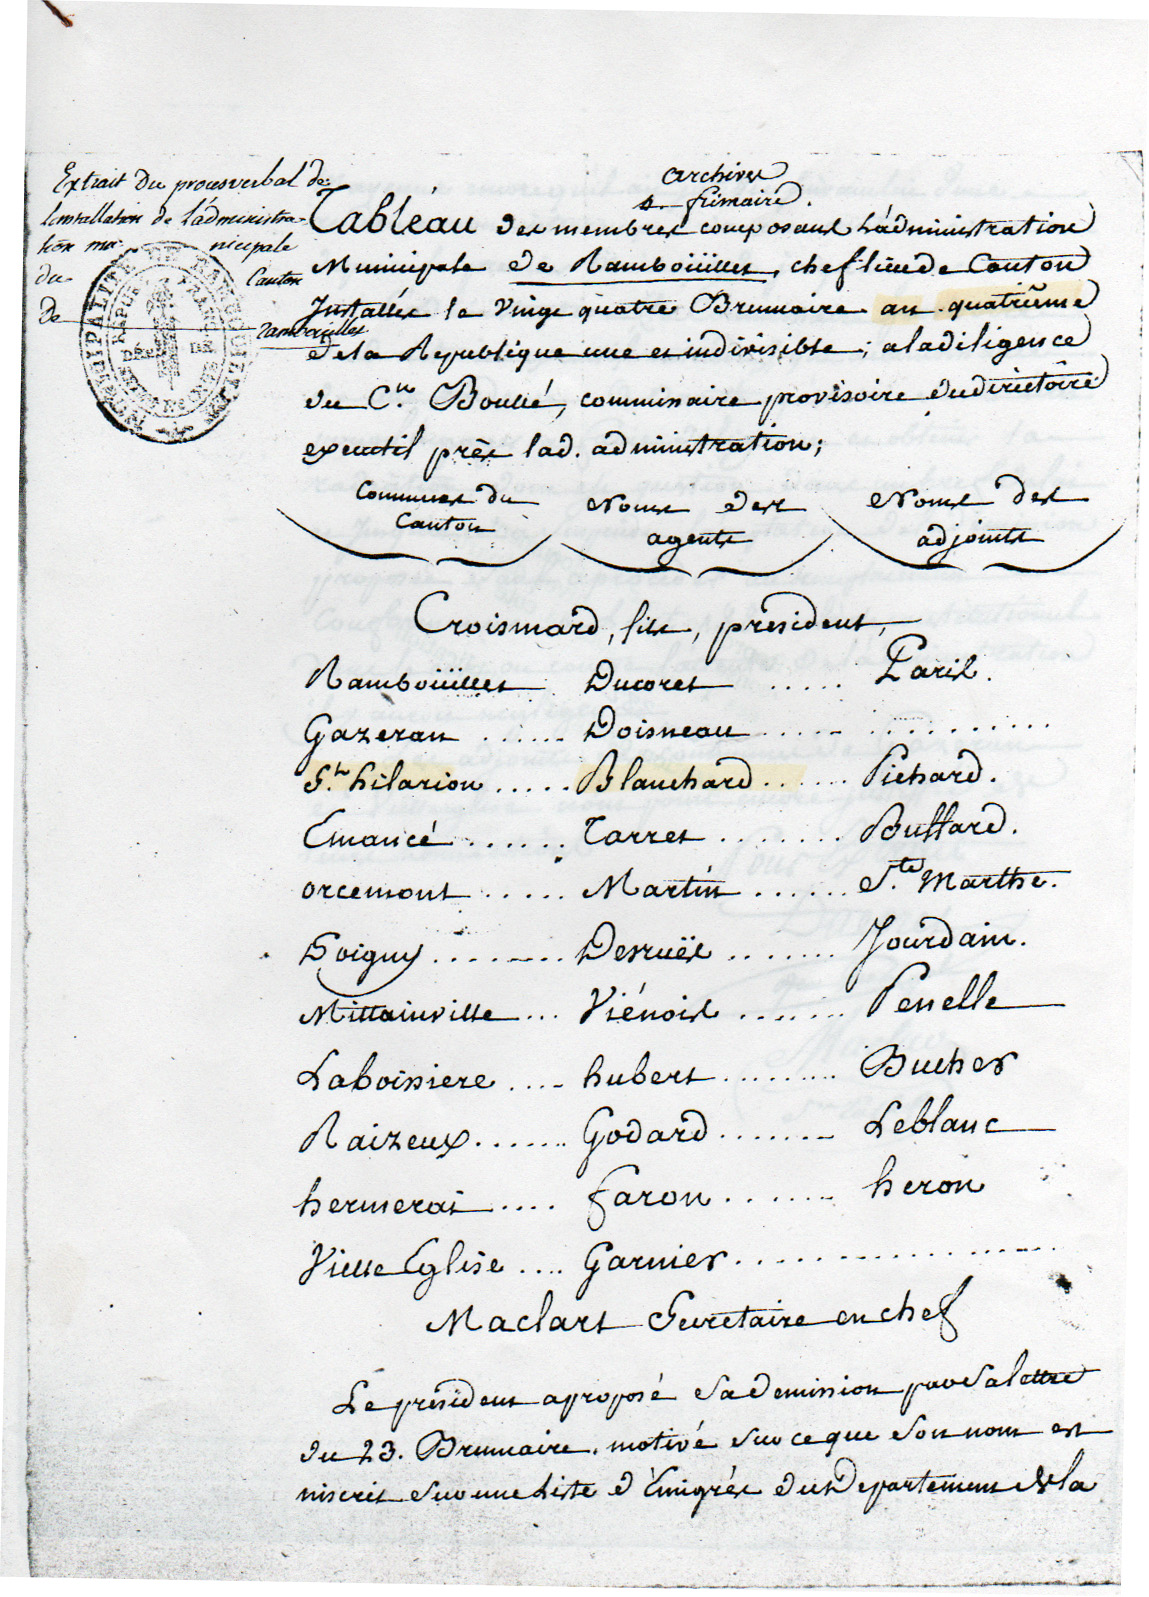 Extrait Du procesverbal de
Linstallation de L'administra-
tion mu nicipale
du Canton
De Rambouillet
MUNICIPALITE DE RAMBOUILLET
archives
4 frimaire.
Tableau des membres composant L'administration
Municipale de Rambouillet, chef lieu de Canton
Installée le Vingt quatre Brumaire an quatrême
de la République une et indivisible; aladiligence
du C.en Boullé, commissaire provisoire dudirectoire
executif près lad. administration;
Communes du Noms des Noms des
Canton agents adjoints
Croismard, fils, président,
Rambouillet Ducoret ..... Paris.
Gazeran ...... Doisneau ..... .........
St. hilarion ..... Blanchard ...... Pichard.
Emancé ...... Tarret ....... Buffard.
orcemont ..... Martin ...... Ste. Marthe.
Poigny ........ Desruës ....... Jourdain.
Mittainville ... Viénois ....... Penelle
Laboissiere .... hubert ......... Bucher
Raizeux ....... Godard ....... Leblanc
hermerai .... faron ....... heron
Vielle Eglise .... Garnier ..................
Maclart Secretaire en chef
Le président aproposé sa demission par sa lettre
du 23. Brumaire. motivé sur ce que son nom est
inscrit sur une Liste d'Emigrés du Departement de la